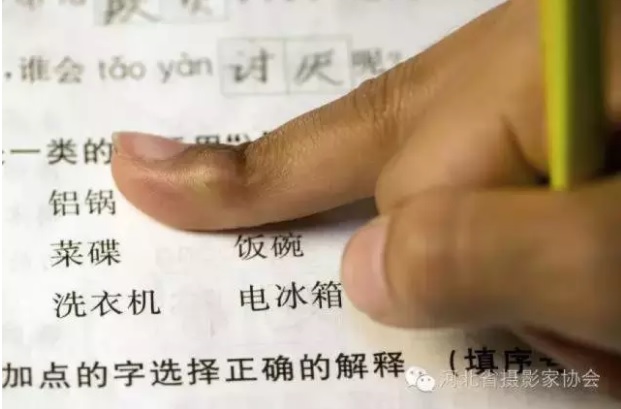 ，谁会 tǎo yàn 讨厌 呢？
一类的
铝锅
菜碟 饭碗
洗衣机 电冰箱
加点的字选择正确的解释（填序号
河北省摄影家协会